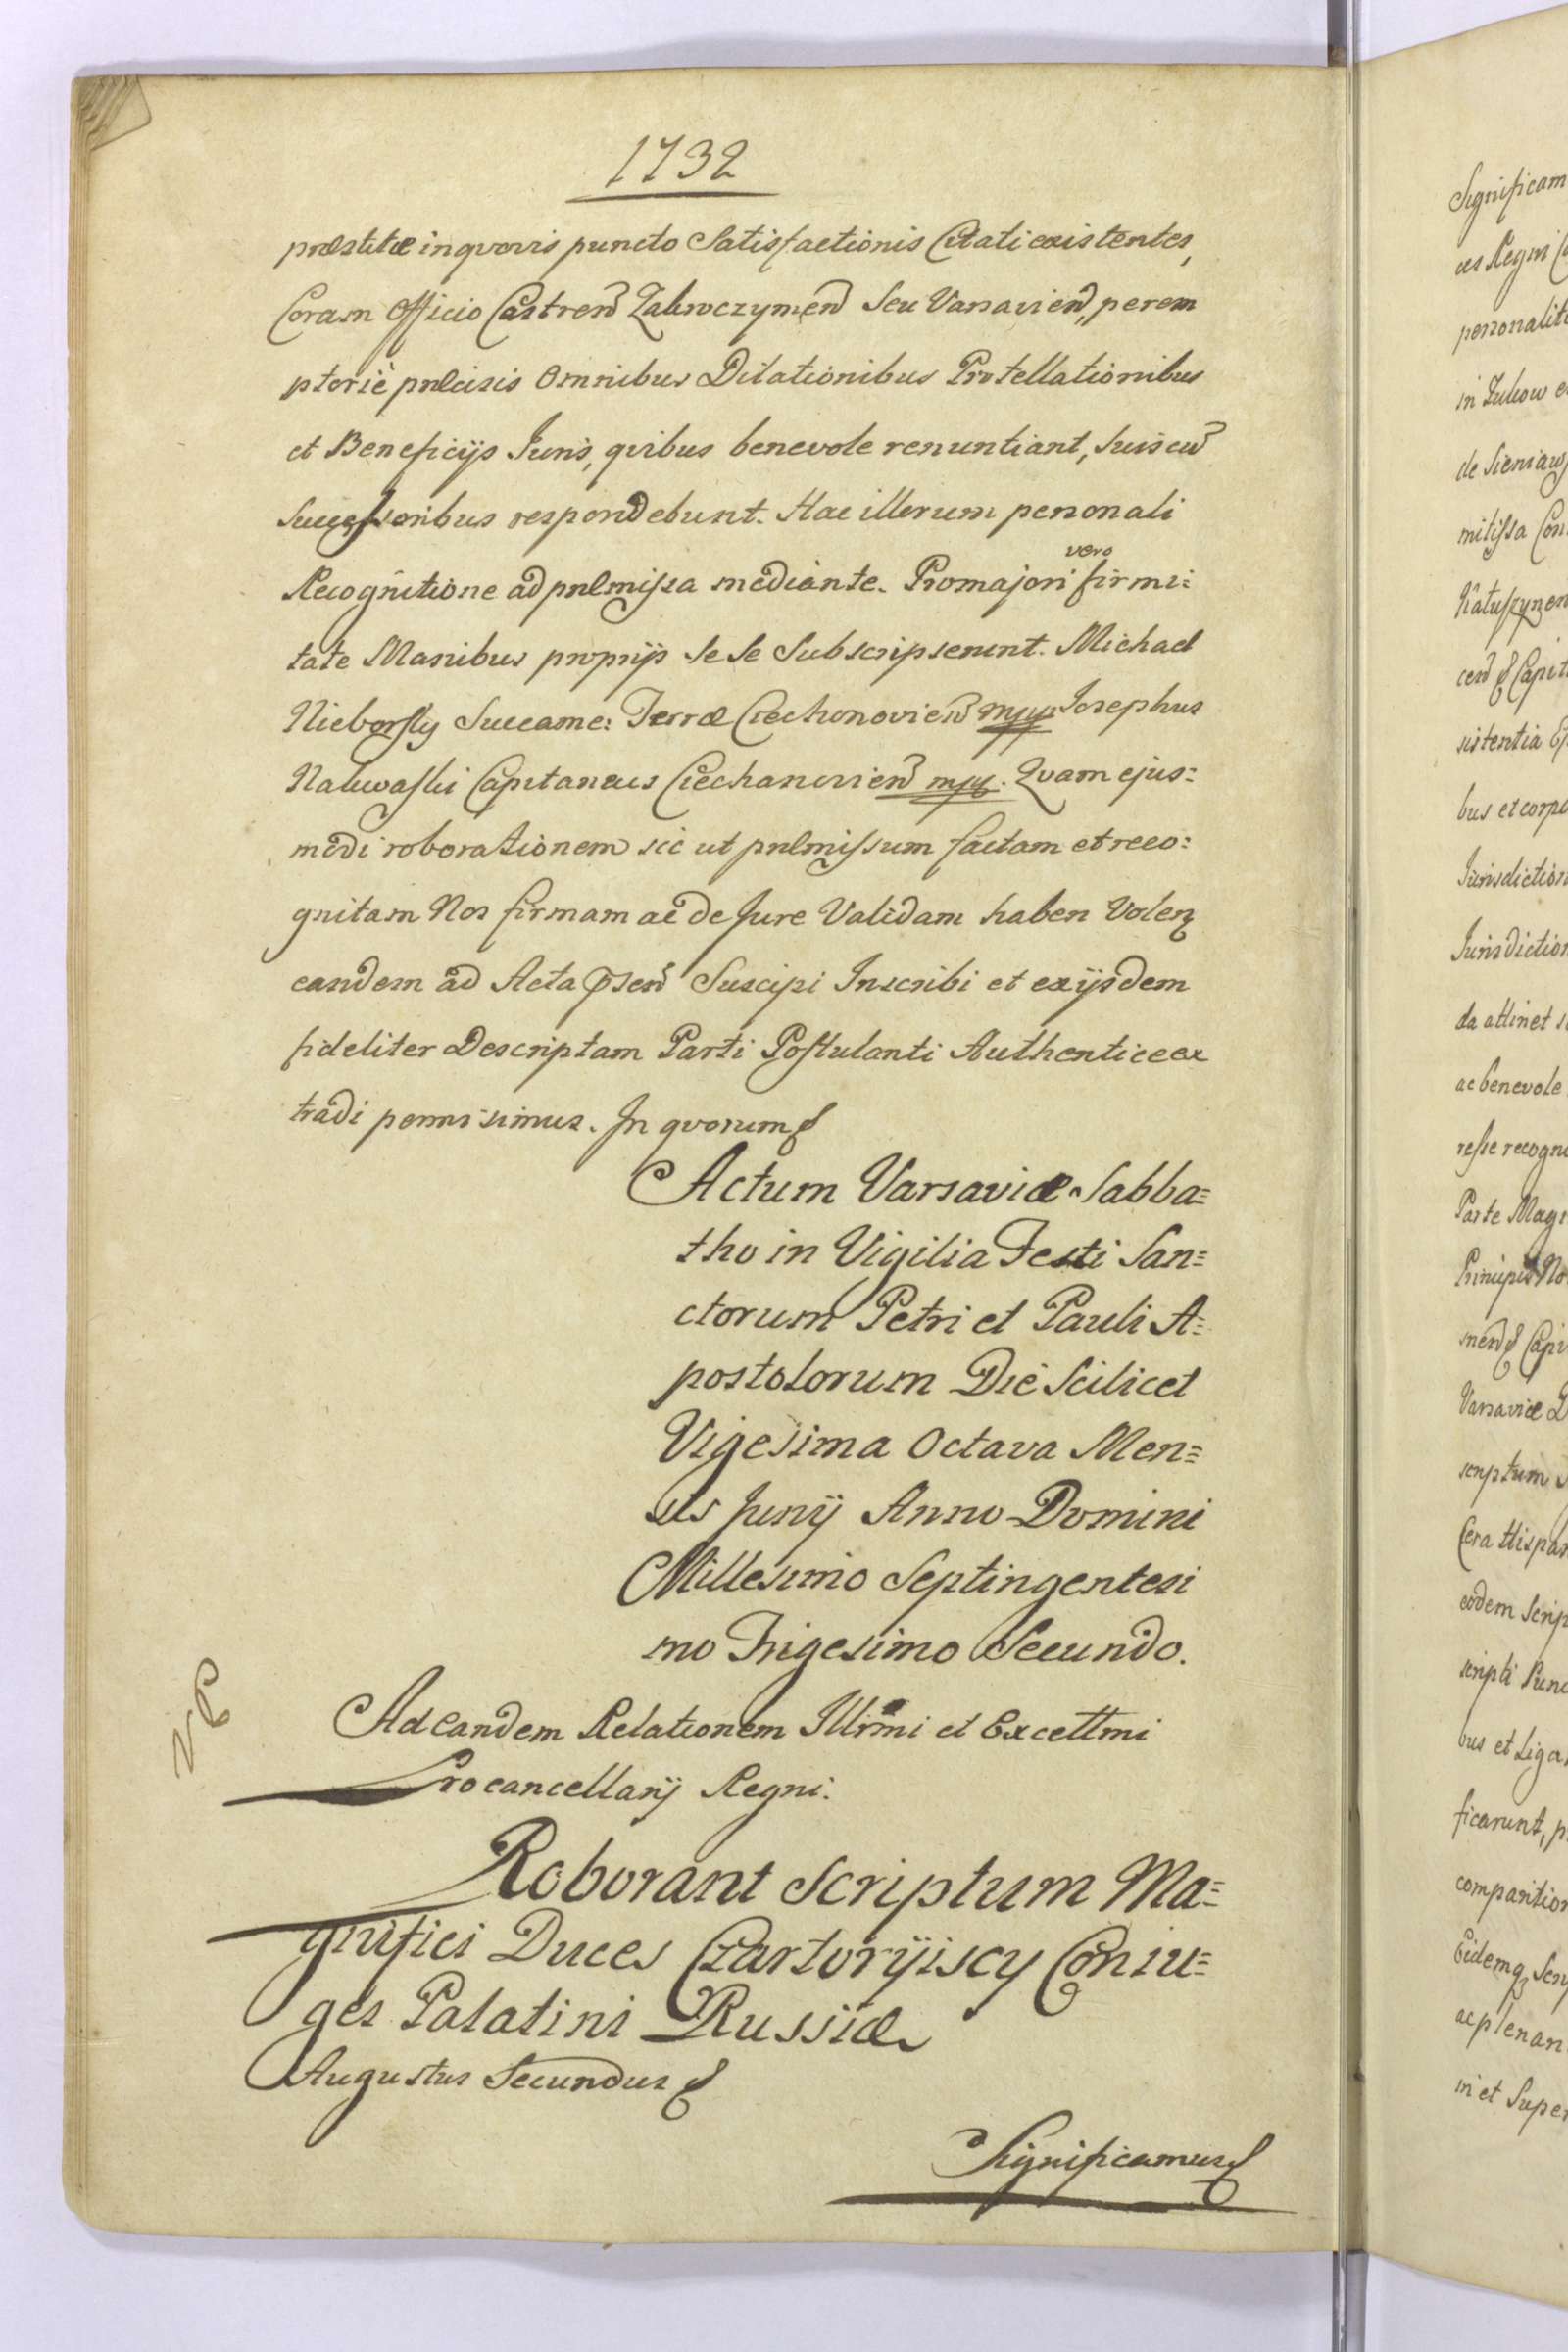 1732
præstitæ in qvovis puncto Satisfactionis Citati existentes,
Coram Officio Castren Zakroczymen Seu Varsavien, perem
ptoriè præcisis Omnibus Dilationibus Protellationibus
et Beneficijs Juris, qvibus benevole renuntiant, Suis cu
Successoribus respondebunt. Hac illorum personali
Recognitione ad præmissa mediante. Pro majori vero firmi:
tate Manibus proprijs Se Se Subscripserunt. Michael
Nieborsky Succame: Terræ Ciechonovien mpp Josephus
Nakwaski Capitaneus Ciechanovien mpp. Qvam ejus:
modi roborationem sic ut præmissum factam et reco:
gnitam Nos firmam ac de Jure Validam haben Volen
eandem ad Acta Suscipi Inscribi et exijsdem
fideliter Descriptam Parti Postulanti Authentice ex
tradi permisimus. In qvorum &
Actum Varsaviæ Sabba=
tho in Vigilia Festi San=
ctorum Petri et Pauli A=
postolorum Die Scilicet
Vigesima Octava Men=
sis Junij Anno Domini
Millesimo Septingentesi
mo Trigesimo Secundo.
Ad eandem Relationem Illrmi et Excellmi
Procancellarij Regni.
Roborant Scriptum Ma=
gnifici Duces Czartoryiscy Coniu=
ges Palatini Russiæ
Augustus Secundus &
Significamus &
Significam
personalit
in Zukow e
de Sieniaw
mitissa Con
sistentia
bus et corpo
Jurisdiction
Jurisdiction
da attinet
ac benevole
resse recogn
Parte Mag
Principis No
Varsaviæ
scriptum
Cera Hispan
eodem Scrip
scripti Punc
bus et Liga
ficarunt, p
comparition
Eidemq Scrip
ac plenam
ni et Super